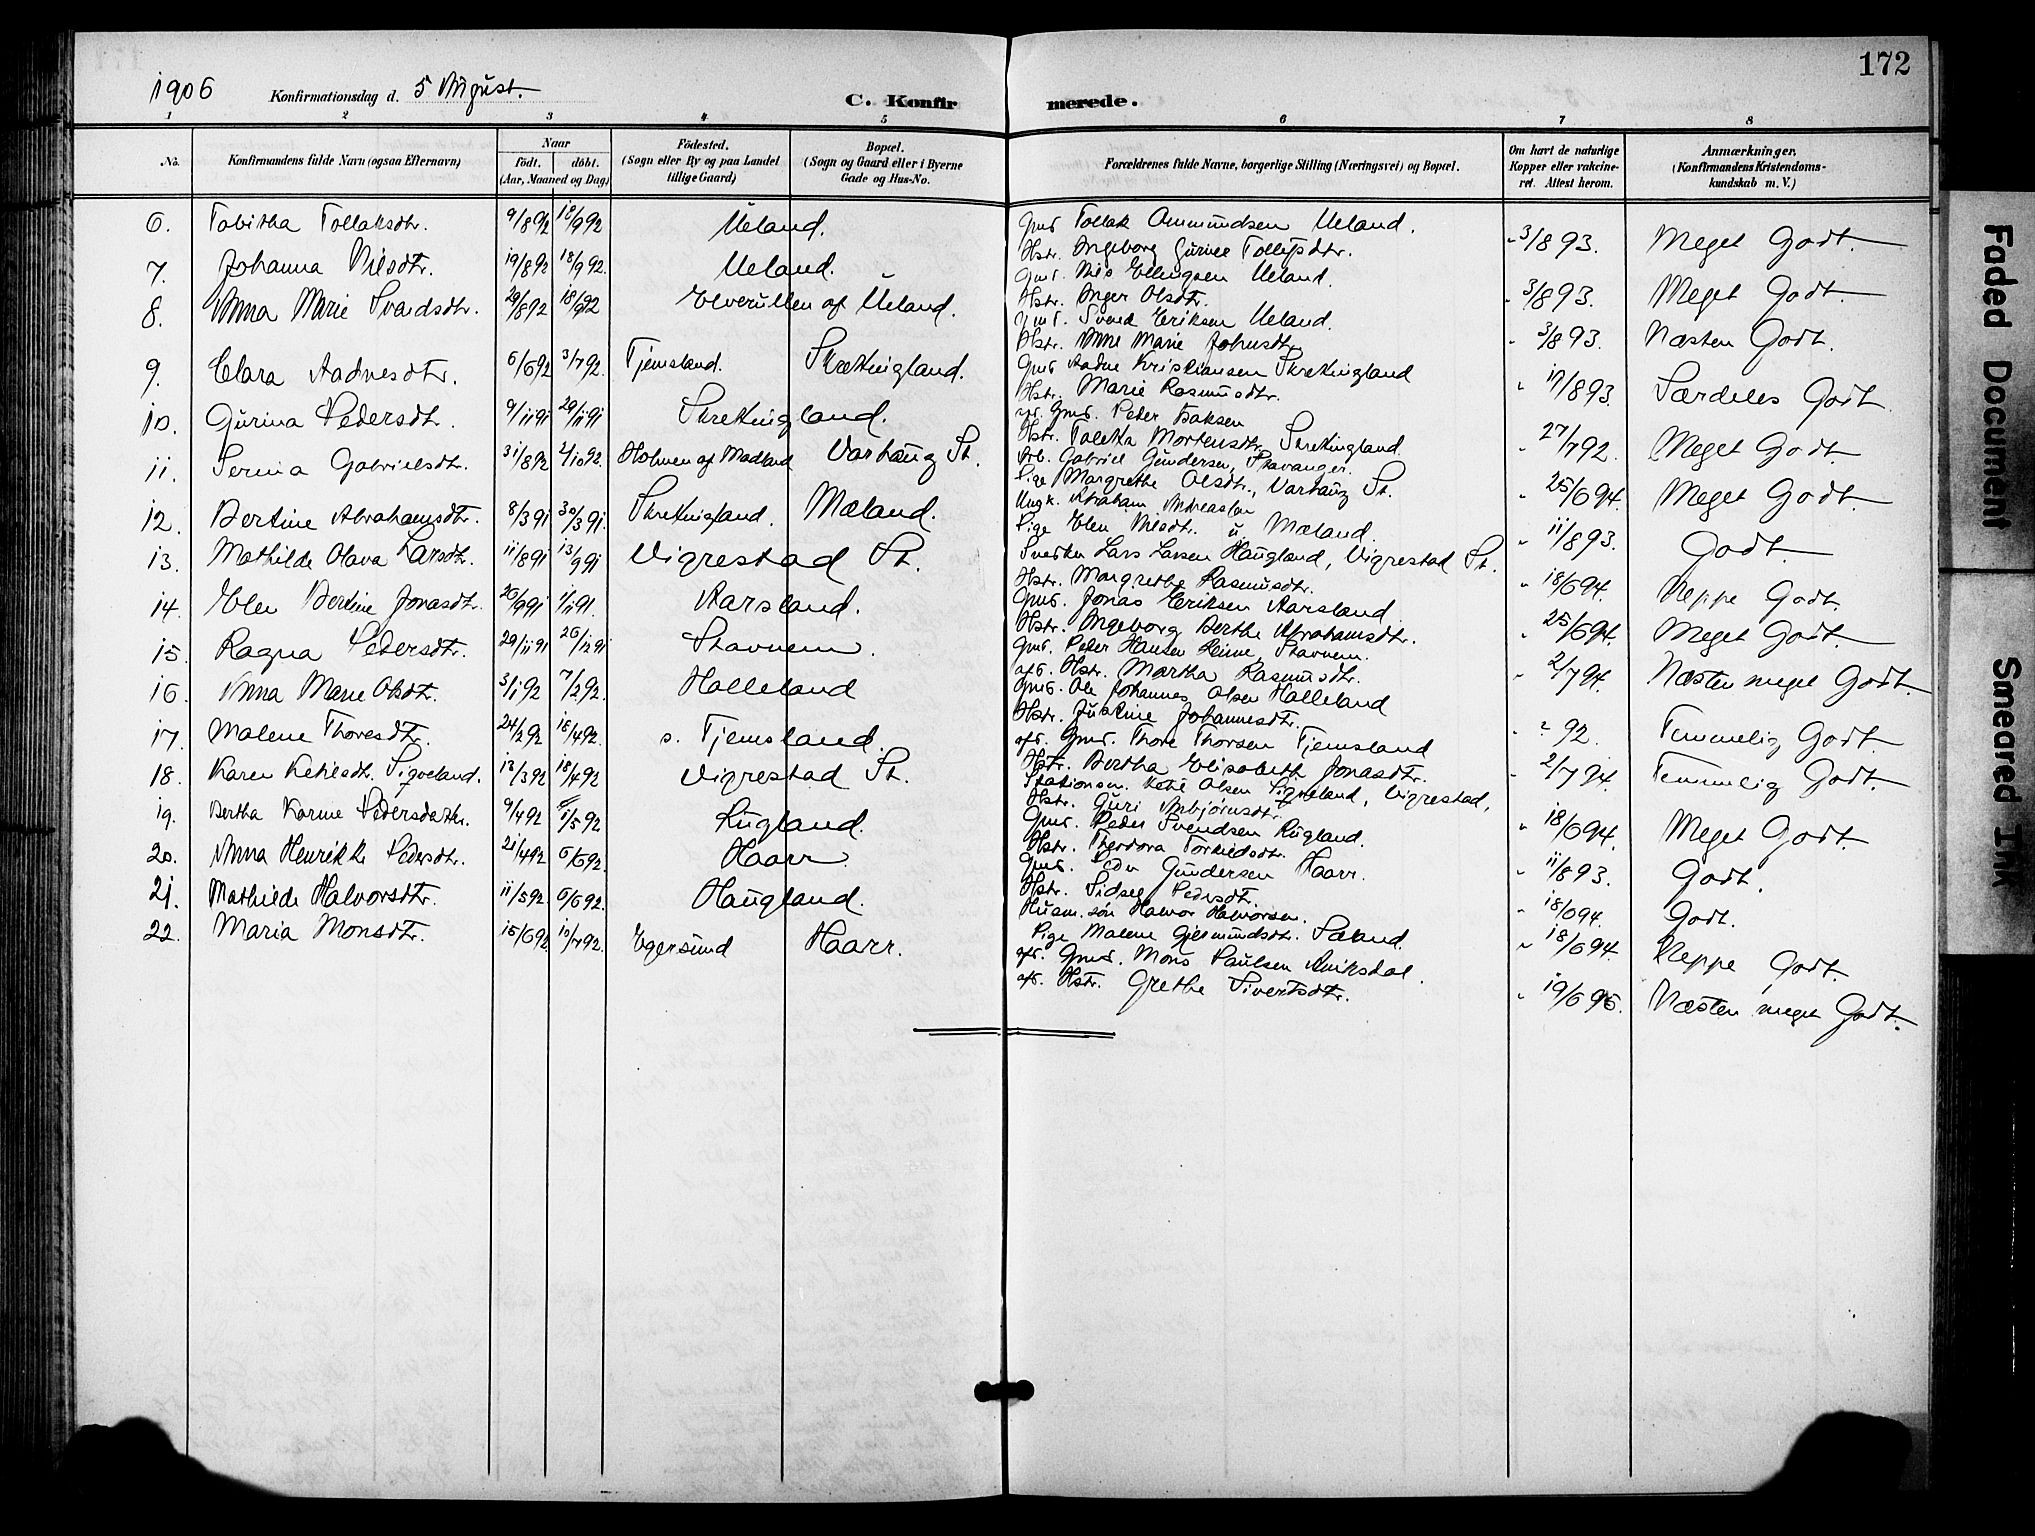 172
1906 Konfirmationsdag d. 5 August.
C. Konfirmerede.
1 2 3 4 5 6 7 8
No. Konfirmandens fulde Navn (ogsaa Efternavn) Naar födt. döbt. (Aar, Maaned og Dag) Födested. (Sogn eller By og paa Landet tillige Gaard) Bopæl. (Sogn og Gaard eller i Byerne Gade og Hus-No. Forældrenes fulde Navne, borgerlige Stilling (Næringsvei) og Bopæl. Om havt de naturlige Kopper eller vakcineret. Attest herom. Anmærkninger. (Konfirmandens Kristendomskundskab m. V.)
6. Tobitha Tollaksdtr. 9/8 92 18/9 92 Ueland. Gmd Tollak Ommundsen Ueland.
Hstr. Ingeborg Gurine Tollefsdtr. 3/8 93. Meget Godt.
7. Johanna Nilsdtr. 19/8 92 18/9 92. Ueland. Gmd. Nils Ellingsen Ueland.
Hstr. Inger Olsdtr. 3/8 93. Meget Godt.
8. Anna Marie Svendsdtr. 29/8 92 18/9 92 af Ueland. Gmd. Svend Eriksen Ueland.
Hstr. Anne Marie Johnsdtr. 3/8 93. Næsten Godt.
9. Clara Aadnesdtr. 6/6 92 3/7 92. Tjemsland. Skretingland. Gmd Aadne Kristiansen Skretingland
Hstr. Marie Rasmusdtr. 17/8 93. Særdeles Godt
10. Gurina Pedersdtr. 9/11 91 29/11 91 Skretingland. Gmd. Peder Isaksen
Hstr. Taletta Mortensdtr. Skretingland. 27/7 92. Meget Godt.
11. Serina Gabrielsdtr. 31/8 92 2/10 92. Holmen af Madland Varhaug St. Arb. Gabriel Gundersen, Stavanger.
Pige Margrethe Olsdtr., Varhaug St. 25/6 94. Meget Godt
12. Bertine Abrahamsdtr. 8/3 91 30/3 91. Skretingland. Mæland. Ungk. Abraham Andreassen
Pige Elen Nilsdtr. Mæland. 11/8 93. Godt.
13. Mathilde Olava Larsdtr. 11/8 91 13/9 91 Vigrestad St. Lars Larsen Haugland, Vigrestad St.
Hstr. Margrethe Rasmusdtr. 18/6 94. Neppe Godt.
14. Elen Bertine Jonasdtr. 20/9 91 1/11 91. Aarsland. Gmd. Jonas Eriksen Aarsland
Hstr. Ingeborg Berthe Abrahamsdtr. 25/6 94. Meget Godt.
15. Ragna Pedersdtr. 29/11 91 26/12 91 Stavnem. Gmd. Peder Hansen Stavnem.
afd. Hstr. Martha Rasmusdtr. 2/7 94. Næsten meget Godt.
16. Anna Marie Olsdtr. 3/1 92 7/2 92. Holleland Gmd. Ole Johannes Olsen Holleland
Hstr. Justine Johannesdtr. 92. Temmelig Godt.
17. Malene Thoresdtr. 24/2 92 18/4 92. s. Tjemsland. afd. Gmd. Thore Thorsen Tjemsland
Hstr. Bertha Elisabeth Jonasdtr. 2/7 94. Temmelig Godt.
18. Karen Ketilsdtr. Sigveland. 13/3 92 18/4 92 Vigrestad St. Stationsm. Ketil Olsen Sigveland, Vigrestad.
Hstr. Guri Anbjørnsdtr. 18/6 94. Meget Godt.
19. Bertha Karine Pedersdatter. 9/4 92 /5 92 Rugland. Gmd. Peder Svendsen Rugland.
Hstr. Theodora Torkildsdtr. 11/8 93. Godt.
20. Anna Henrikke Pedersdtr. 21/4 92 6/6 92. Haarr. Gmd. Peder Gundersen Haarr.
Hstr. Sidsel Pedersdtr. 18/6 94. Godt.
21. Mathilde Halvorsdtr. 11/5 92 6/6 92. Haugland. Husm. søn Halvor Halvorsen.
Pige Malene Gjermundsdtr. Sæland. 18/6 94. Neppe Godt.
22. Maria Monsdtr. 15/6 92 10/7 92. Egersund Haarr. afd. Gmd. Mons Paulsen Aniksdal.
afd. Hstr. Grethe Sivertsdtr. 19/6 96. Næsten meget Godt.
Faded Document
Smeared Ink